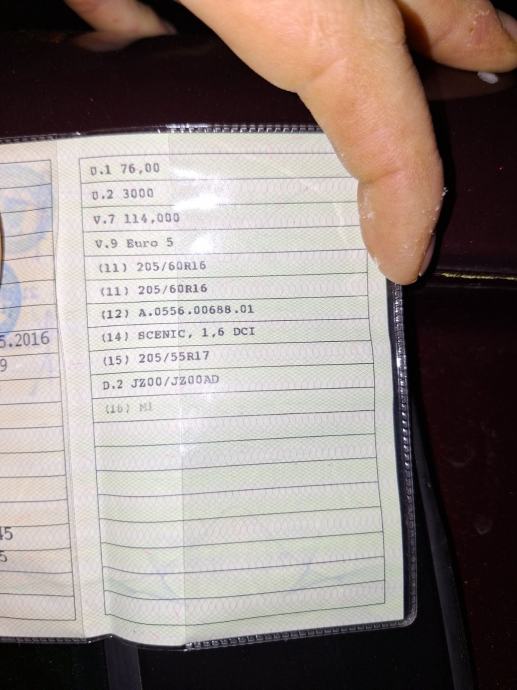 U.1 76,00
U.2 3000
V.7 114,000
V.9 Euro 5
(11) 205/60R16
(11) 205/60R16
(12) A.0556.00688.01
5.2016
(14) SCENIC, 1,6 DCI
9
(15) 205/55R17
D.2 JZ00/JZ00AD
(16) M1
45
5